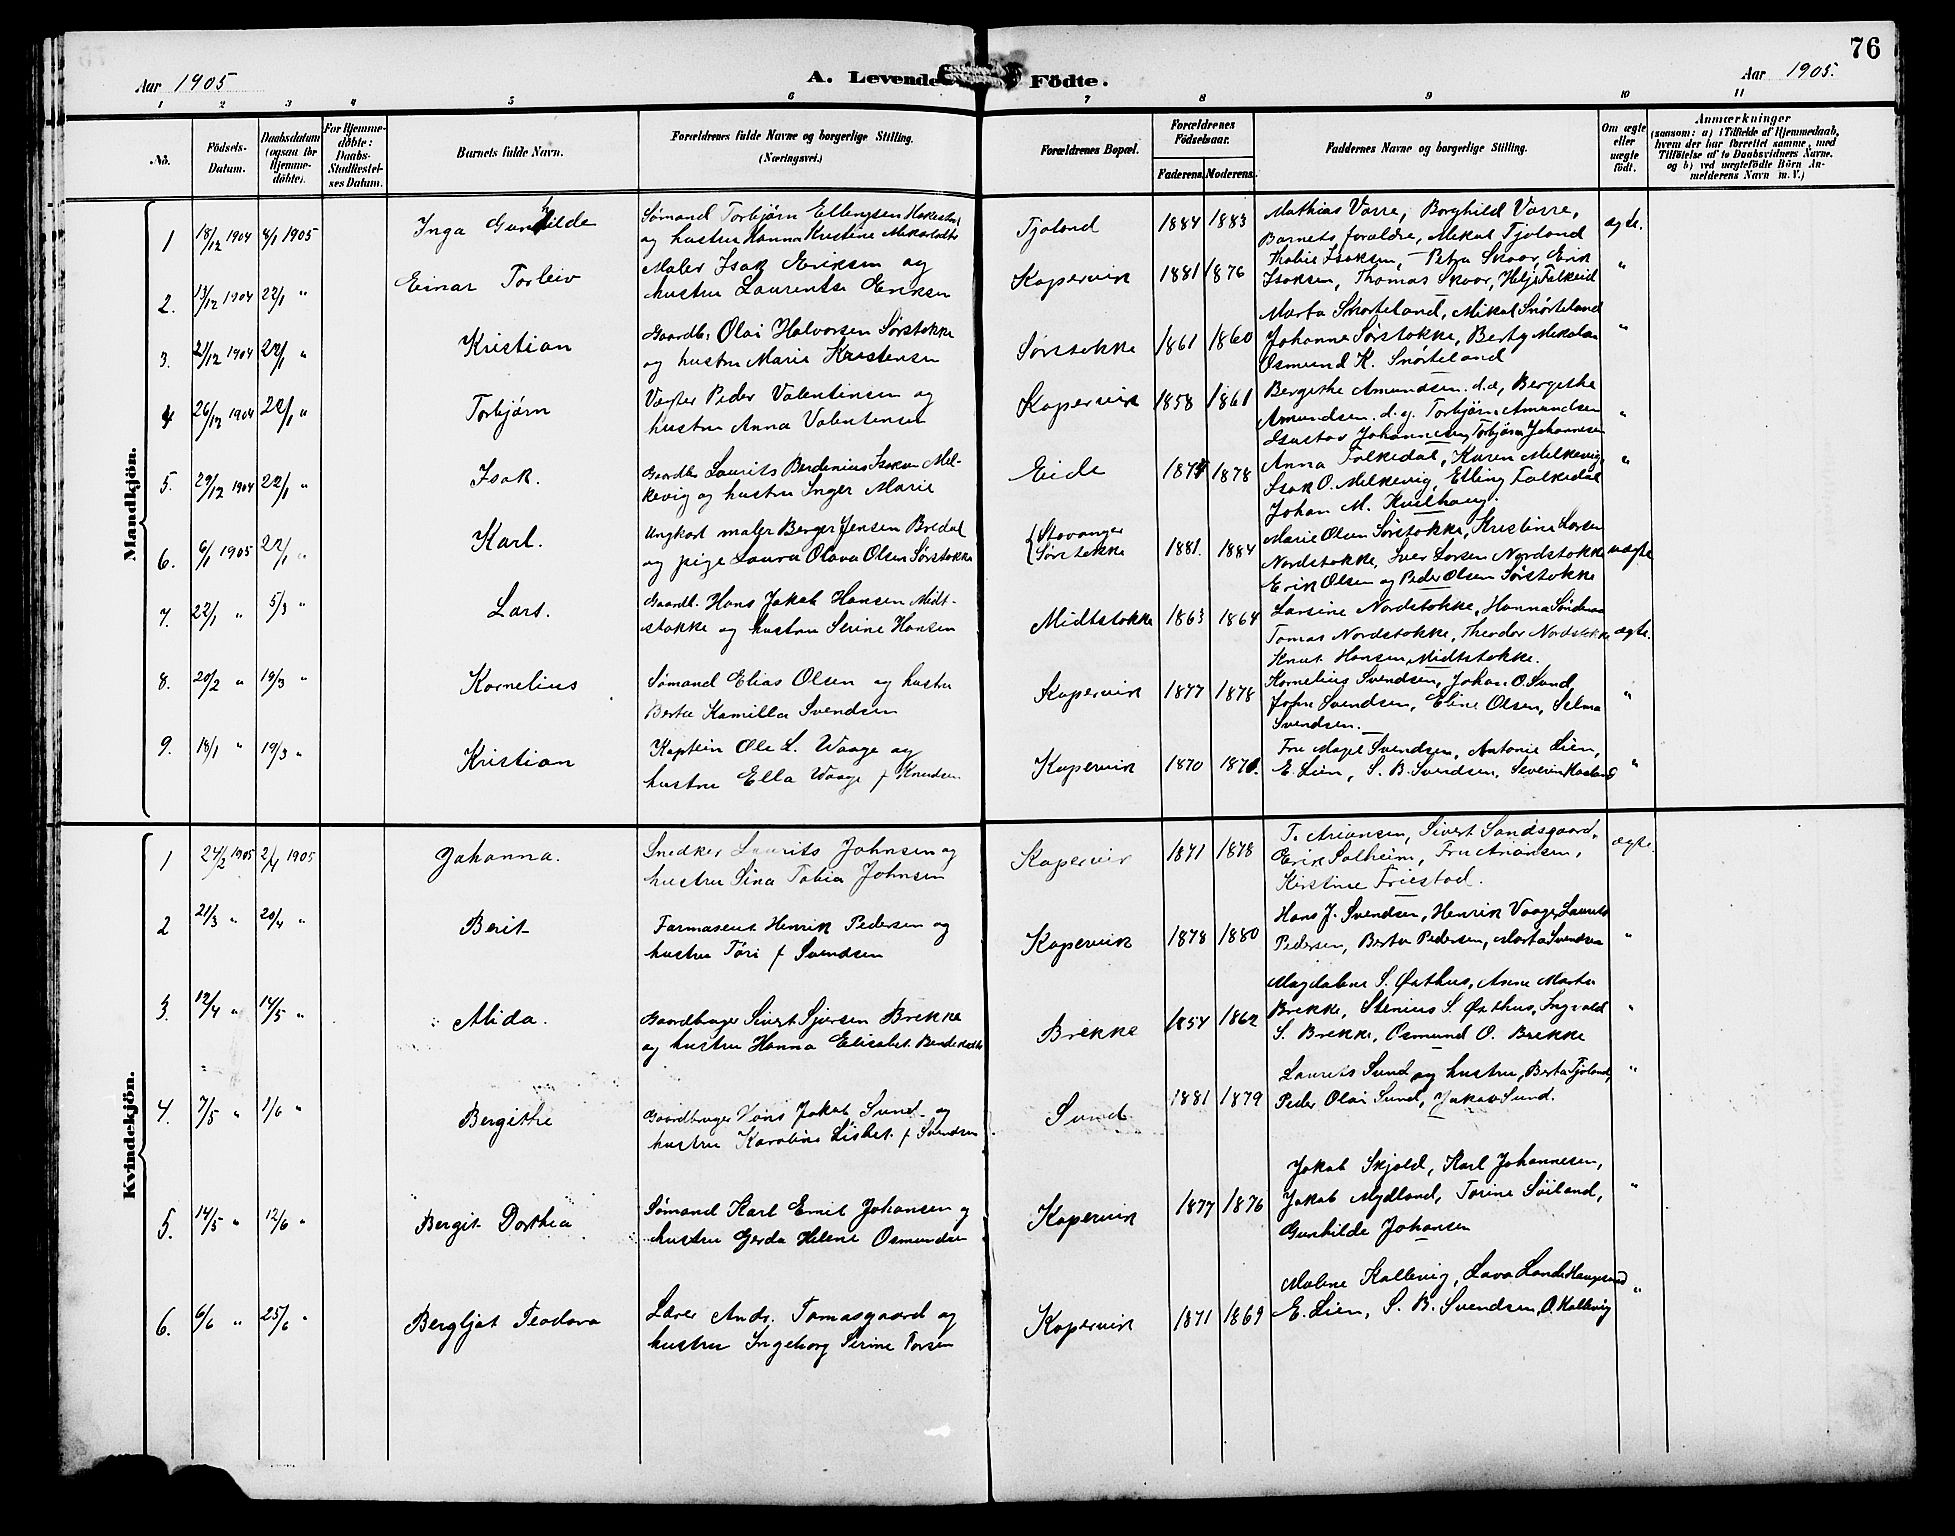 76
Aar 1905
A. Levende Födte.
Aar 1905.
1 2 3 4 5 6 7 8 9 10 11
No.
Födsels-
Datum.
Daabsdatum
(ogsaa for
Hjemme-
döbte).
For Hjemme-
döbte:
Daabs-
Stadfæstel-
ses Datum.
Barnets fulde Navn.
Forældrenes fulde Navne og borgerlige Stilling.
(Næringsvei.)
Forældrenes Bopæl.
Forældrenes
Födselsaar.
Faderens.
Moderens.
Faddernes Navne og borgerlige Stilling.
Om ægte
eller
uægte
födt.
Anmærkninger
(saasom: a) i Tilfælde af Hjemmedaab,
hvem der har forrettet samme, med
Tilföielse af to Daabsvidners Navne,
og b) ved uægtefödte Börn An-
melderens Navn m. V.)
Mandkjön.
1 18/12 1904 8/1 1905 Inga Gunhilde
Sømand Torbjørn Ellingsen
og hustru Hanna Kristine
Tjoland 1884 1883
Mathias Varre, Borghild Varre,
Barnets forældre, Mikal Tjoland
ægte.
2. 13/12 1904 22/1 " Einar Torleiv
Maler Isak Eriksen og
hustru Laurentse Eriksen
Kopervik 1881 1876
Tkobis Isaksen, Petra Skaar, Erik
Isaksen, Thomas Skaar, Helje Falkeid
"
3. 21/12 1904 22/1 " Kristian
Gaardb. Olai Halvorsen Sørstokke
og hustru Marie Kristensen
Sørstokke 1861 1860
Marta Snørteland, Mikal Snørteland
Johanne Sørstokke, Berty
Osmund K. Snørteland
"
4 26/12 1904 22/1 " Torbjørn
Vægter Peder Valentinsen og
hustru Anna Valentinsen
Kopervik 1858 1861
Bergithe Amundsen d.æ, Bergithe
Amundsen. d.y. Torbjørn Amundsen
Gustav Johannesen, Torbjørn Johannesen
"
5. 29/12 1904 22/1 " Isak.
Gaardb. Laurits Berdenius Isaksen Mel-
kevig og hustru Inger Marie
Eide 1878
Anna Falkedal, Karen Melkevig
Isak O. Melkevig, Elling Falkedal
Johan M. Kvilhaug.
"
6. 6/1 1905 22/1 " Karl.
Ungkarl maler Berger Jensen Bredal
og pige Laura Olava Olsen Sørstokke
Stavanger
Sørstokke 1881. 1884
Marie Olsen Sørstokke, Kristine Larsen
Nordstokke, Iver Larsen Nordstokke
Erik Olsen og Peder Olsen Sørstokke
uægte
7. 22/1 " 5/3 " Lars.
Gaardb. Hans Jakob Hansen Midt-
stokke og hustru Serine Hansen
Midtstokke 1863 1864
Larsine Nordstokke, Hanna
Tomas Nordstokke, Theodor Nordstokke
Knut Hansen Midtstokke.
ægte.
8. 20/2 " 19/3 " Kornelius
Sømand Elias Olsen og hustru
Berta Kamilla Svendsen
Kopervik 1877 1878
Kornelius Svendsen, Johan O. Sund
John Svendsen, Eline Olsen, Selma
Svendsen.
"
9. 18/1 " 19/3 " Kristian
Kaptein Ole L. Waage og
hustru Ella Waage f Knudsen
Kopervik 1870 1871.
Fru Magel Svendsen, Antonie Lien,
E. Lien, S. B. Svendsen, Severin
"
Kvindekjön.
1 24/2 1905 2/4 1905 Johanna.
Snedker Laurits Johnsen og
hustru Sina Tobia Johnsen
Kopervik 1871 1878
T. Ariansen, Sivert Sandsgaard,
Erik Solheim, Fru Ariansen,
Kirstine Friestad.
ægte.
2 21/3 " 20/4 " Berit
Farmaseut Henrik Pedersen og
hustru Tori f Svendsen
Kopervik 1878 1880
Hans J. Svendsen, Henrik Vaage, Laurits
Pedersen, Berta Pedersen, Marta Svendsen
"
3. 12/4 " 14/5 " Alida.
Gaardbruger Sivert Sjursen Brekke
og hustru Hanna Elisabet
Brekke 1854 1862
Magdalene S. Østhus, Anne Marta
Brekke, Stenius S. Østhus, Ingvald
S. Brekke, Osmund O. Brekke
"
4. 7/5 " 1/6 " Bergithe
Gaardbruger Jakob Sund og
hustru Karoline Lisbet f Svendsen
Sund 1881 1879
Laurits Sund og hustru, Berta Tjoland,
Peder Olai Sund, Jakob Sund.
"
5. 14/5 " 12/6 " Bergit Dorthea
Sømand Karl Emil Johansen og
hustru Gerda Helene Osmundsen
Kopervik 1877 1876
Jakob Skjold, Karl Johannesen,
Jakob Mydland, Torine Søiland,
Gunhilde Johansen
"
6. 6/6 " 25/6 " Bergljot Teodora
Lærer Andr. Tomasgaard og
hustru Ingeborg Serine Torsen
Kopervik 1871 1869
Malene Kallevig, Lava Lande Haugesund
E. Lien, S. B. Svendsen, O. Kallevig
"